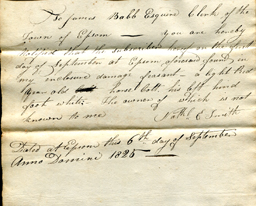 To James Babb Esquire Clerk of the
Town of Epsom — you are hereby
Notified that the subscriber have on the first
day of September at Epsom aforesaid found in
my inclosure damage feasant a light Red
year old horse Colt his left hind
foot white The owner of which is not
known to me Nathl E Smith
Dated at Epsom this 6th day of September
Anno Domini 1825